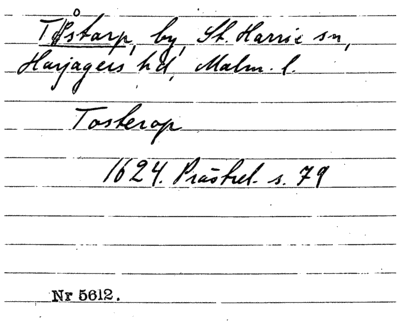 Tåstarp, by, St. Harrie sn,
Harjagers hd, Malm. l.
Tosterop
1624. Prästrel. s. 79
Nr 5612.